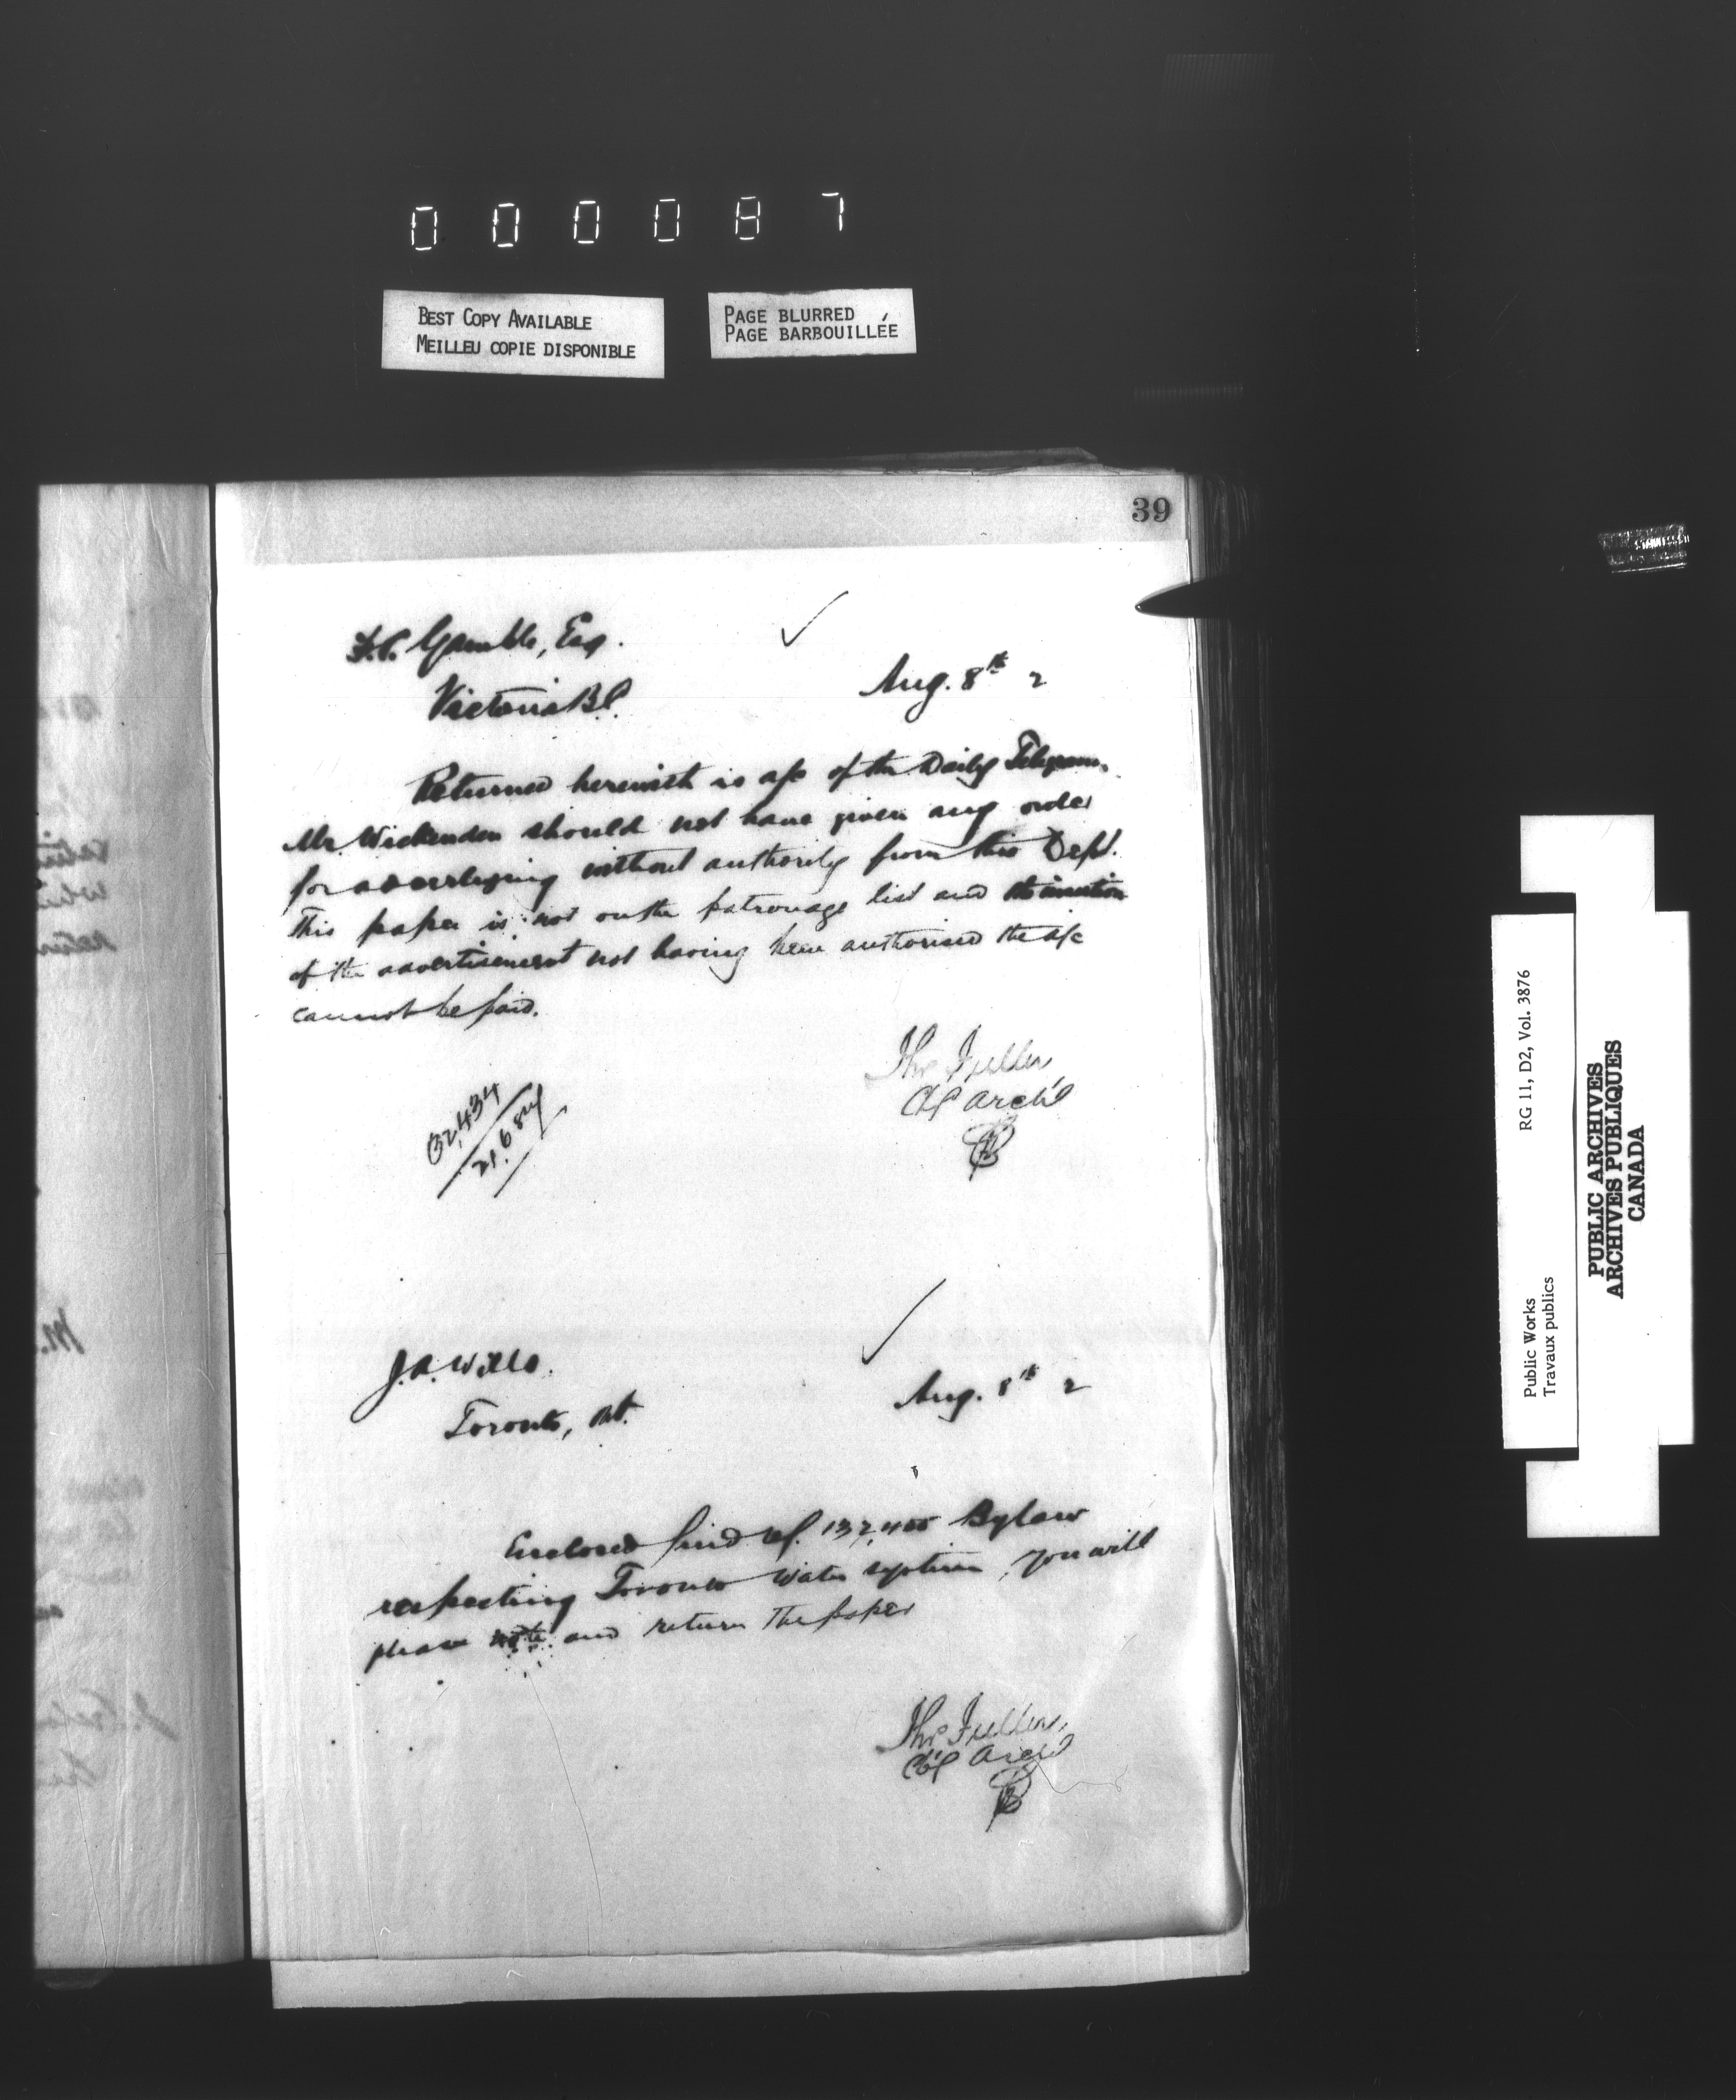 000087
BEST COPY AVAILABLE
MEILLEU COPIE DISPONIBLE
PAGE BLURRED
PAGE BARBOUILLÉE
39
F.C. Gamble, Esq.
Victoria B.C.
Aug. 8th 2
Returned herewith is a/c of the Daily Telegram.
Mr. Wickenden should not have given any order
for advertising without authority from this Dept.
This paper is not on the patronage list and the insertion
of the advertisement not having been authorised the a/c
cannot be paid.
Thos Fuller
Cf Archt
J.A. Wills.
Toronto, Ont.
Aug. 8th 2
Enclosed find ref. 137,400 Bylaw
respecting Toronto Water system, you will
please note and return the paper
Thos Fuller,
Cf Archt
RG 11, D2, Vol. 3876
Public Works
Travaux publics
PUBLIC ARCHIVES
ARCHIVES PUBLIQUES
CANADA